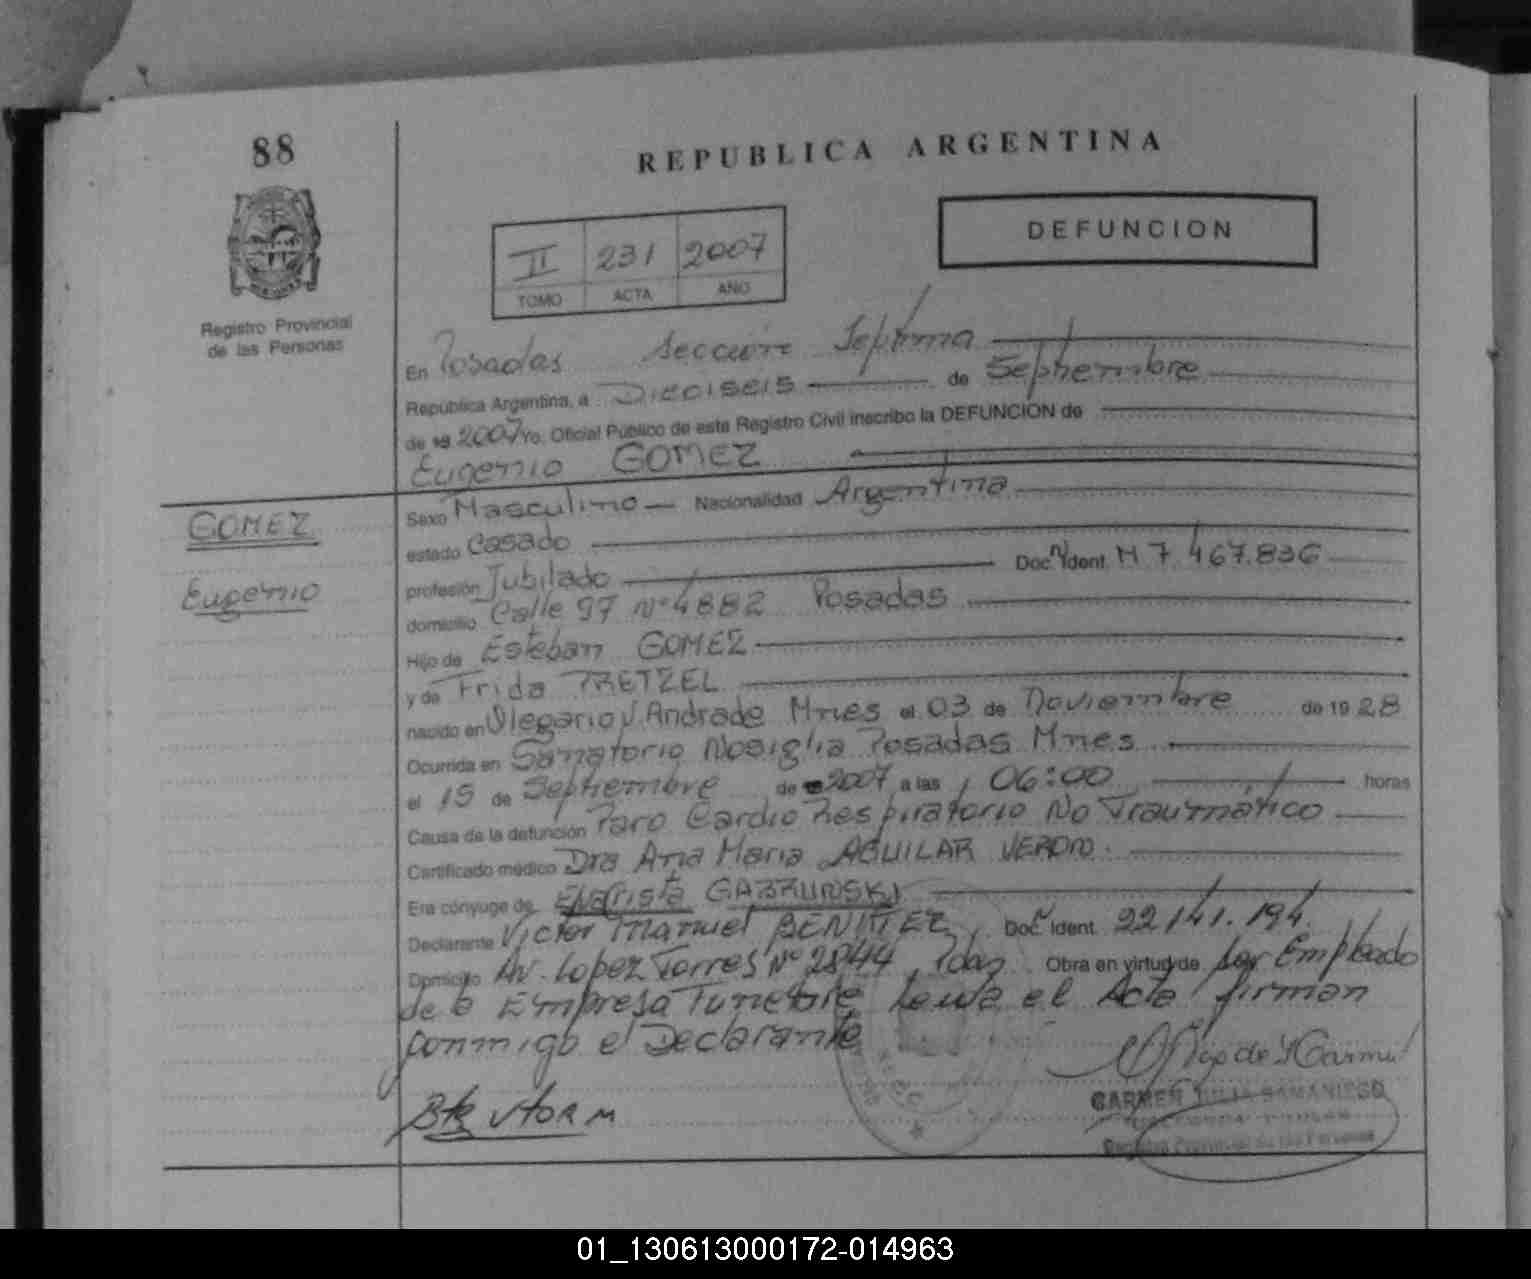 88
REPUBLICA ARGENTINA
DEFUNCION
II 231 2007
TOMO ACTA AÑO
Registro Provincial
de las Personas
En Posadas Sección Septima
República Argentina, a Dieciseis de Septiembre
de 19 2007 Yo, Oficial Público de este Registro Civil inscribo la DEFUNCION de
Eugenio GOMEZ
GOMEZ
Eugenio
Sexo Masculino Nacionalidad Argentina
estado Casado
profesión Jubilado Doc. Ident. M 7.467.836
domicilio Calle 97 Nº 4882 Posadas
Hijo de Esteban GOMEZ
y de Frida TRETZEL
nacido en Olegario V. Andrade Mnes el 03 de Noviembre de 1928
Ocurrida en Sanatorio Nosiglia Posadas Mnes
el 15 de Septiembre de 2007 a las 06:00 horas
Causa de la defunción Paro Cardio Respiratorio No Traumático
Certificado médico Dra Ana Maria AGUILAR VERON.
Era cónyuge de GABRUNSKI
Declarante Victor Manuel BENITEZ Doc. Ident. 22.141.194
Domicilio Av. Lopez Torres Nº 2844 Pdas Obra en virtud de ser Empleado
de la Empresa Funebre Leida el Acta firman
conmigo el Declarante
CARMEN JULIA SAMANIEGO
Registro Provincial de las Personas
01_130613000172-014963